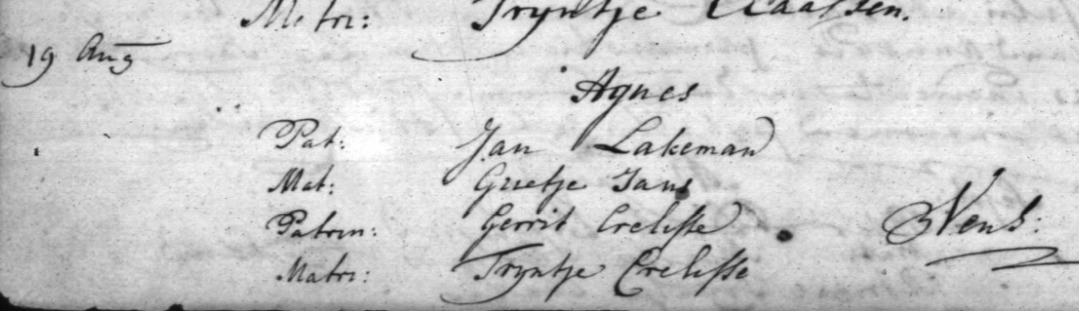 Matri: Tryntje Claassen.
19 Aug
Agnes
Pat: Jan Lakeman
Mat: Grietje Jans
Patrin: Gerrit Crelisse Wens:
Matri: Tryntje Crelisse